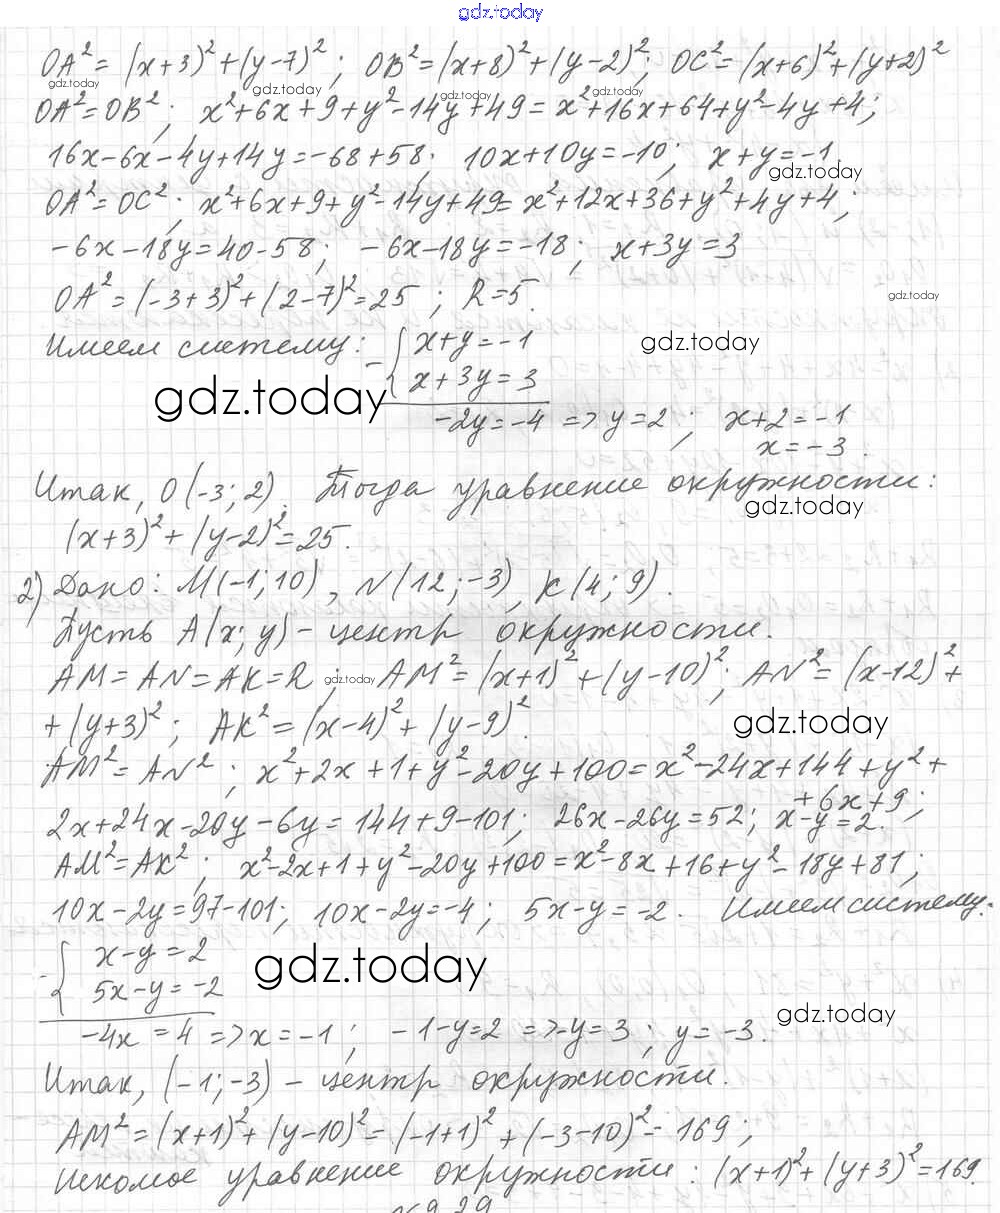 gdz.today
OA² = (x+3)² + (y-7)²; OB² = (x+8)² + (y-2)²; OC² = (x+6)² + (y+2)²
gdz.today gdz.today gdz.today gdz.today
OA² = OB²; x² + 6x + 9 + y² - 14y + 49 = x² + 16x + 64 + y² - 4y + 4;
16x - 6x - 4y + 14y = -68 + 58; 10x + 10y = -10; x + y = -1
gdz.today
OA² = OC²; x² + 6x + 9 + y² - 14y + 49 = x² + 12x + 36 + y² + 4y + 4;
-6x - 18y = 40 - 58; -6x - 18y = -18; x + 3y = 3
OA² = (-3+3)² + (2-7)² = 25; R = 5.
gdz.today
Имеем систему: { x + y = -1
gdz.today
- { x + 3y = 3
gdz.today
-2y = -4 => y = 2; x + 2 = -1
x = -3.
Итак, O(-3; 2). Тогда уравнение окружности:
gdz.today
(x+3)² + (y-2)² = 25.
2) Дано: M(-1; 10), N(12; -3), K(4; 9).
Пусть A(x; y) - центр окружности.
AM = AN = AK = R; gdz.today AM² = (x+1)² + (y-10)²; AN² = (x-12)² +
+ (y+3)²; AK² = (x-4)² + (y-9)².
gdz.today
AM² = AN²; x² + 2x + 1 + y² - 20y + 100 = x² - 24x + 144 + y² +
+ 6x + 9;
2x + 24x - 20y - 6y = 144 + 9 - 101; 26x - 26y = 52; x - y = 2.
AM² = AK²; x² - 2x + 1 + y² - 20y + 100 = x² - 8x + 16 + y² - 18y + 81;
10x - 2y = 97 - 101; 10x - 2y = -4; 5x - y = -2. Имеем систему:
- { x - y = 2
gdz.today
5x - y = -2
gdz.today
-4x = 4 => x = -1; -1 - y = 2 => -y = 3; y = -3.
Итак, (-1; -3) - центр окружности.
AM² = (x+1)² + (y-10)² = (-1+1)² + (-3-10)² = 169;
Искомое уравнение окружности: (x+1)² + (y+3)² = 169.